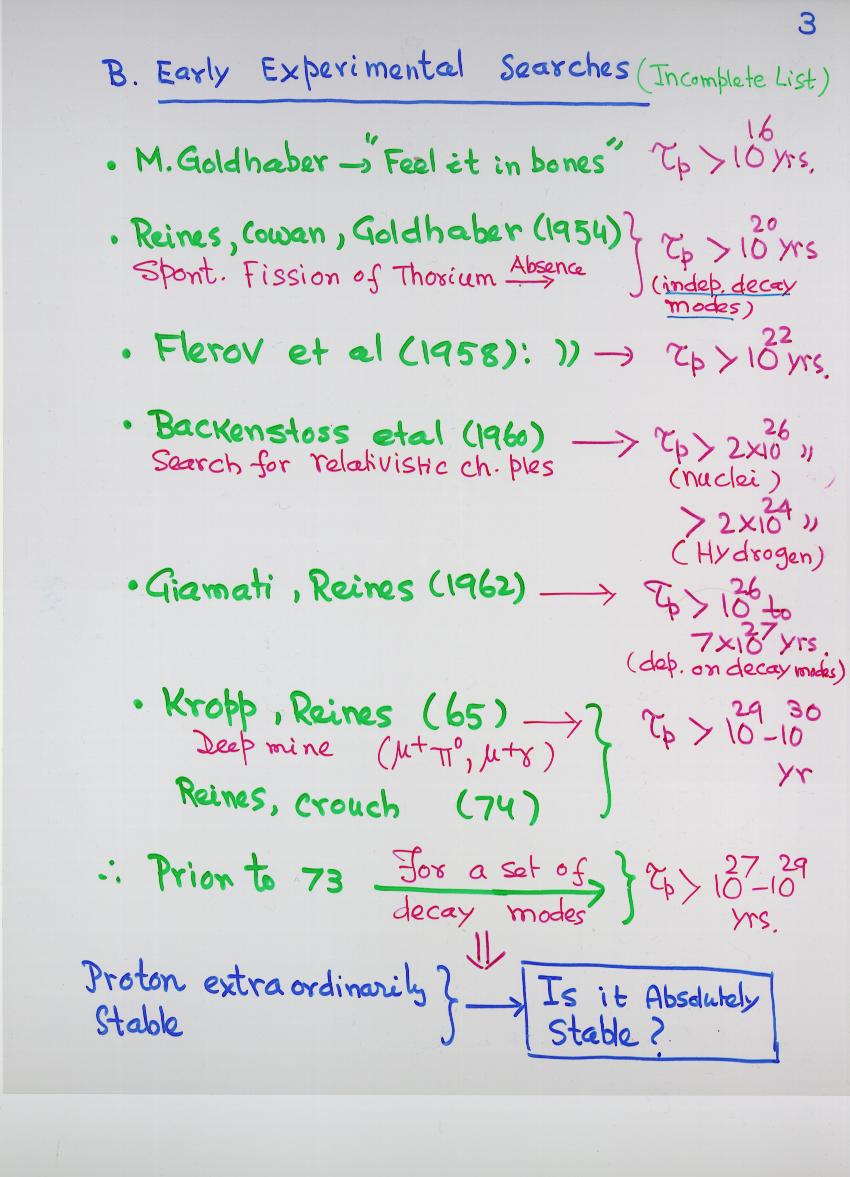 3
B. Early Experimental Searches (Incomplete List)
• M. Goldhaber → "Feel it in bones" τp > 10^16 yrs.
• Reines, Cowan, Goldhaber (1954) } τp > 10^20 yrs
Spont. Fission of Thorium Absence → (indep. decay modes)
• Flerov et al (1958): 〃 → τp > 10^22 yrs.
• Backenstoss etal (1960) → τp > 2×10^26 〃
Search for relativistic ch. ples (nuclei)
> 2×10^24 〃
(Hydrogen)
• Giamati, Reines (1962) → τp > 10^26 to
7×10^27 yrs.
(dep. on decay modes)
• Kropp, Reines (65) → } τp > 10^29 – 10^30
Deep mine (μ+ π°, μ+γ) yr
Reines, Crouch (74)
∴ Prior to 73 For a set of → } τp > 10^27 – 10^29
decay modes yrs.
⇓
Proton extraordinarily } → Is it Absolutely
Stable Stable?